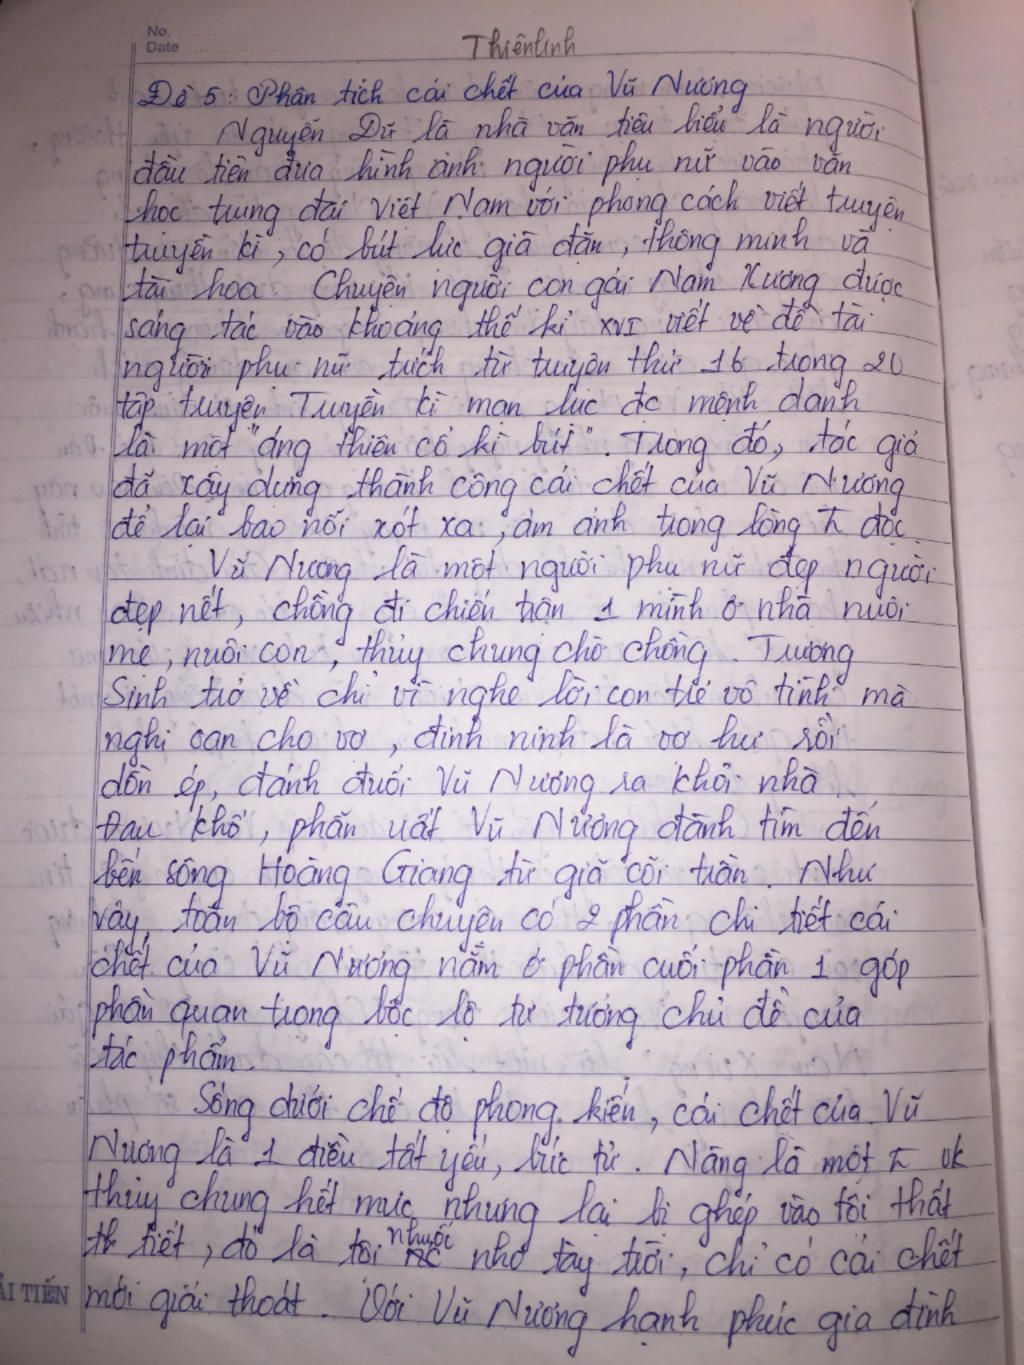 No.
Date
Thiên linh
Đề 5: Phân tích cái chết của Vũ Nương
Nguyễn Dữ là nhà văn tiêu biểu là người
đầu tiên đưa hình ảnh người phụ nữ vào văn
học trung đại Việt Nam với phong cách viết truyện
truyền kì, có bút lực già dặn, thông minh và
tài hoa. Chuyện người con gái Nam Xương được
sáng tác vào khoảng thế kỉ XVI viết về đề tài
người phụ nữ trích từ truyện thứ 16 trong 20
tập truyện Truyền kì mạn lục đc mệnh danh
là một "áng thiên cổ kì bút". Trong đó, tác giả
đã xây dựng thành công cái chết của Vũ Nương
để lại bao nỗi xót xa, ám ảnh trong lòng độc
Vũ Nương là một người phụ nữ đẹp người
đẹp nết, chồng đi chiến trận 1 mình ở nhà nuôi
mẹ, nuôi con, thủy chung chờ chồng. Trương
Sinh trở về chỉ vì nghe lời con trẻ vô tình mà
nghi oan cho vợ, đinh ninh là vợ hư rồi
dồn ép, đánh đuổi Vũ Nương ra khỏi nhà.
Đau khổ, phẫn uất Vũ Nương đành tìm đến
bến sông Hoàng Giang từ giã cõi trần. Như
vậy, toàn bộ câu chuyện có 2 phần chi tiết cái
chết của Vũ Nương nằm ở phần cuối phần 1 góp
phần quan trọng bộc lộ tư tưởng chủ đề của
tác phẩm.
Sống dưới chế độ phong kiến, cái chết của Vũ
Nương là 1 điều tất yếu, bức tử. Nàng là một vk
thủy chung hết mực nhưng lại bị ghép vào tội thất
tiết, đó là tội nhuốc nhơ tày trời, chỉ có cái chết
mới giải thoát. Với Vũ Nương hạnh phúc gia đình
ẢI TIẾN